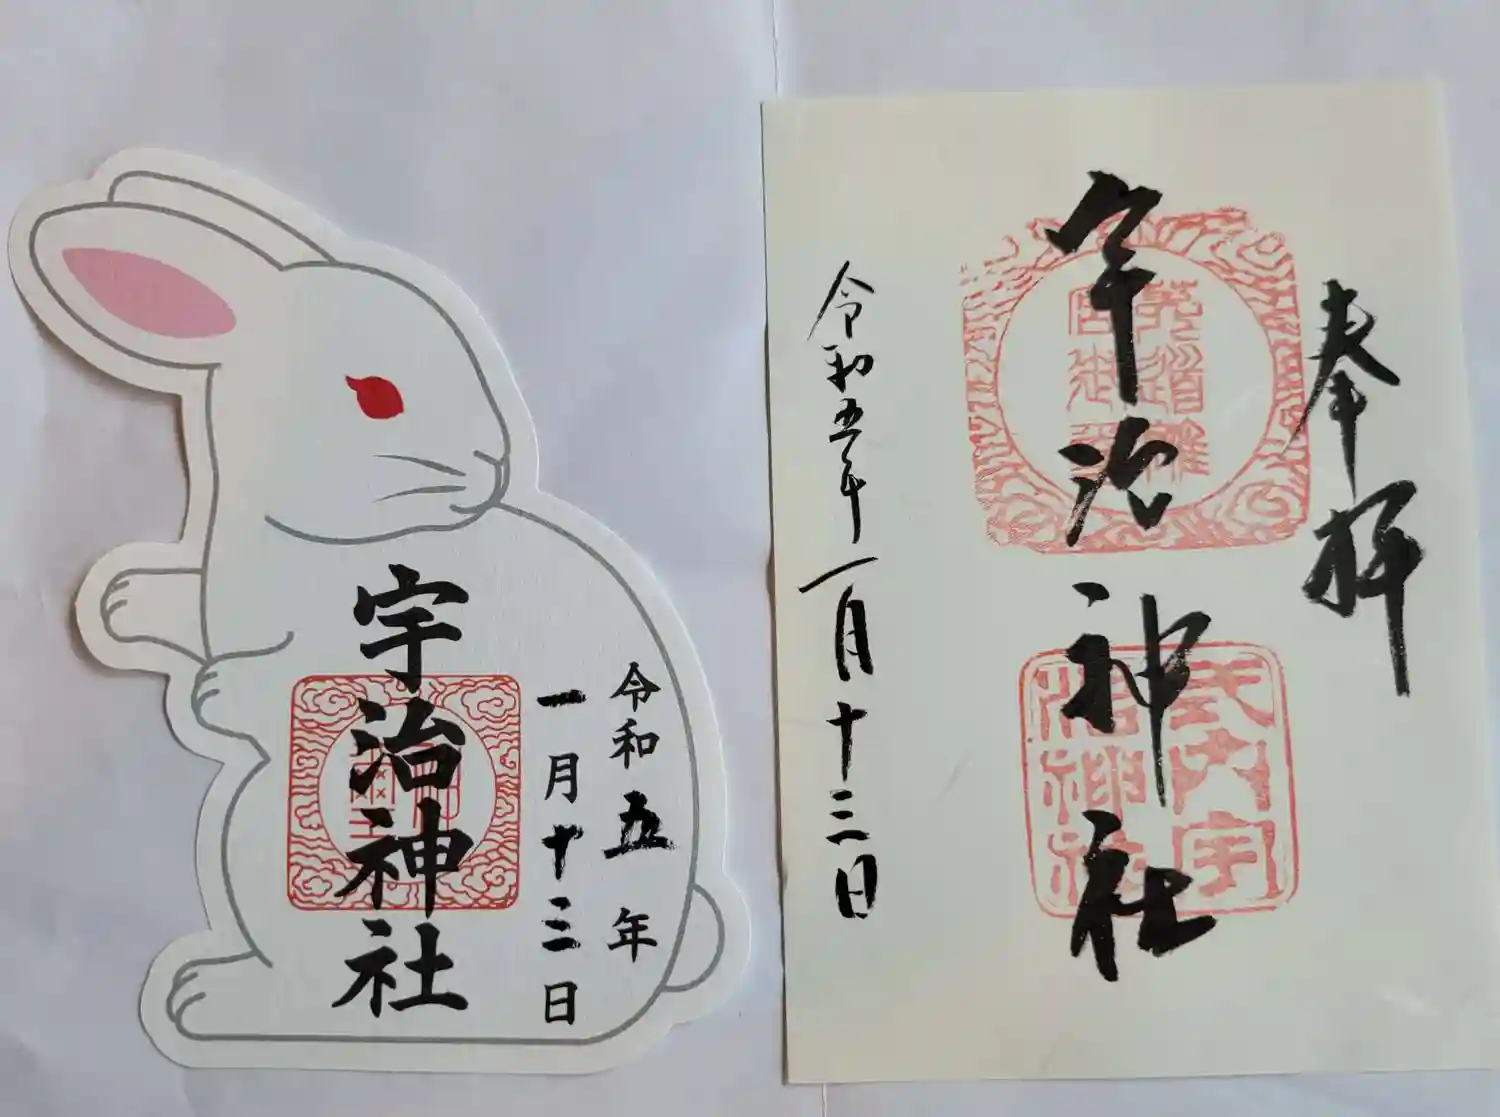 宇治神社
令和五年
一月十三日
奉拝
宇治神社
式内宇
治神社
令和五年一月十三日